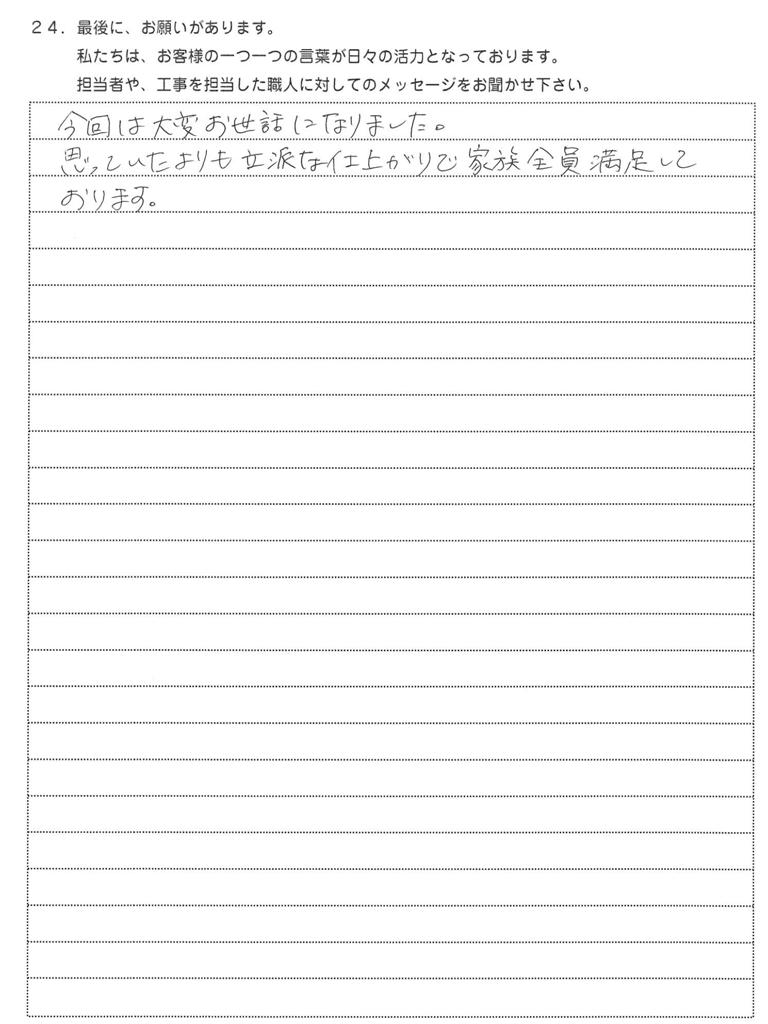 ２４．最後に、お願いがあります。
私たちは、お客様の一つ一つの言葉が日々の活力となっております。
担当者や、工事を担当した職人に対してのメッセージをお聞かせ下さい。
今回は大変お世話になりました。
思っていたよりも立派な仕上がりで家族全員満足して
おります。